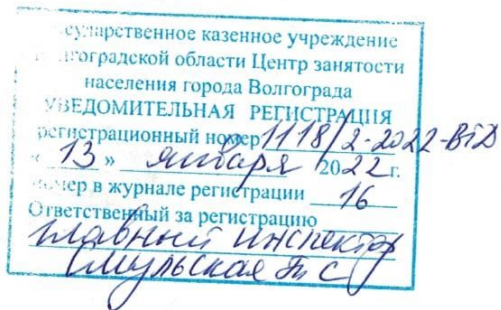 государственное казенное учреждение
Волгоградской области Центр занятости
населения города Волгограда
УВЕДОМИТЕЛЬНАЯ РЕГИСТРАЦИЯ
регистрационный номер 1118/2-2022-ВТД
« 13 » января 2022 г.
номер в журнале регистрации 16
Ответственный за регистрацию
главный инспектор
Смульская Т С